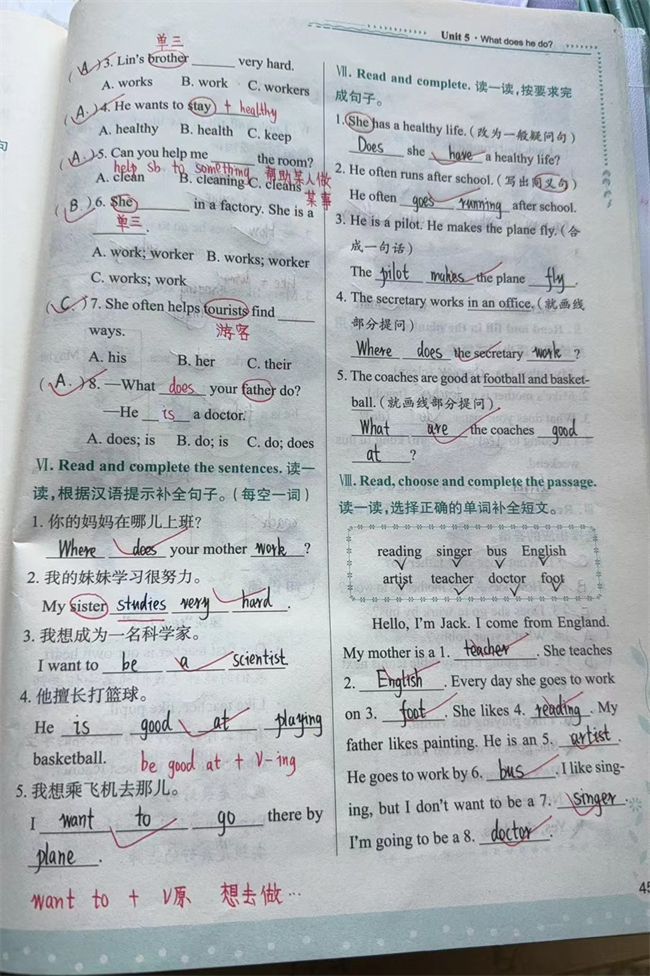 Unit 5 · What does he do?
单三
( A. ) 3. Lin's brother ______ very hard.
A. works B. work C. workers
( A. ) 4. He wants to stay ______ + healthy
A. healthy B. health C. keep
( A. ) 5. Can you help me ______ the room?
help sb to something 帮助某人做某事
A. clean B. cleaning C. cleans
( B ) 6. She ______ in a factory. She is a
单三
______.
A. work; worker B. works; worker
C. works; work
( C. ) 7. She often helps tourists find ______
ways. 游客
A. his B. her C. their
( A. ) 8. —What does your father do?
—He is a doctor.
A. does; is B. do; is C. do; does
Ⅵ. Read and complete the sentences. 读一
读,根据汉语提示补全句子。(每空一词)
1. 你的妈妈在哪儿上班?
Where does your mother work ?
2. 我的妹妹学习很努力。
My sister studies very hard .
3. 我想成为一名科学家。
I want to be a scientist
4. 他擅长打篮球。
He is good at playing
basketball. be good at + V-ing
5. 我想乘飞机去那儿。
I want to go there by
plane .
want to + V原 想去做…
Ⅶ. Read and complete. 读一读,按要求完
成句子。
1. She has a healthy life. (改为一般疑问句)
Does she have a healthy life?
2. He often runs after school. (写出同义句)
He often goes running after school.
3. He is a pilot. He makes the plane fly. (合
成一句话)
The pilot makes the plane fly.
4. The secretary works in an office. (就画线
部分提问)
Where does the secretary work ?
5. The coaches are good at football and basket-
ball. (就画线部分提问)
What are the coaches good
at ?
Ⅷ. Read, choose and complete the passage.
读一读,选择正确的单词补全短文。
reading singer bus English
artist teacher doctor foot
Hello, I'm Jack. I come from England.
My mother is a 1. teacher . She teaches
2. English . Every day she goes to work
on 3. foot . She likes 4. reading . My
father likes painting. He is an 5. artist .
He goes to work by 6. bus . I like sing-
ing, but I don't want to be a 7. singer .
I'm going to be a 8. doctor .
45